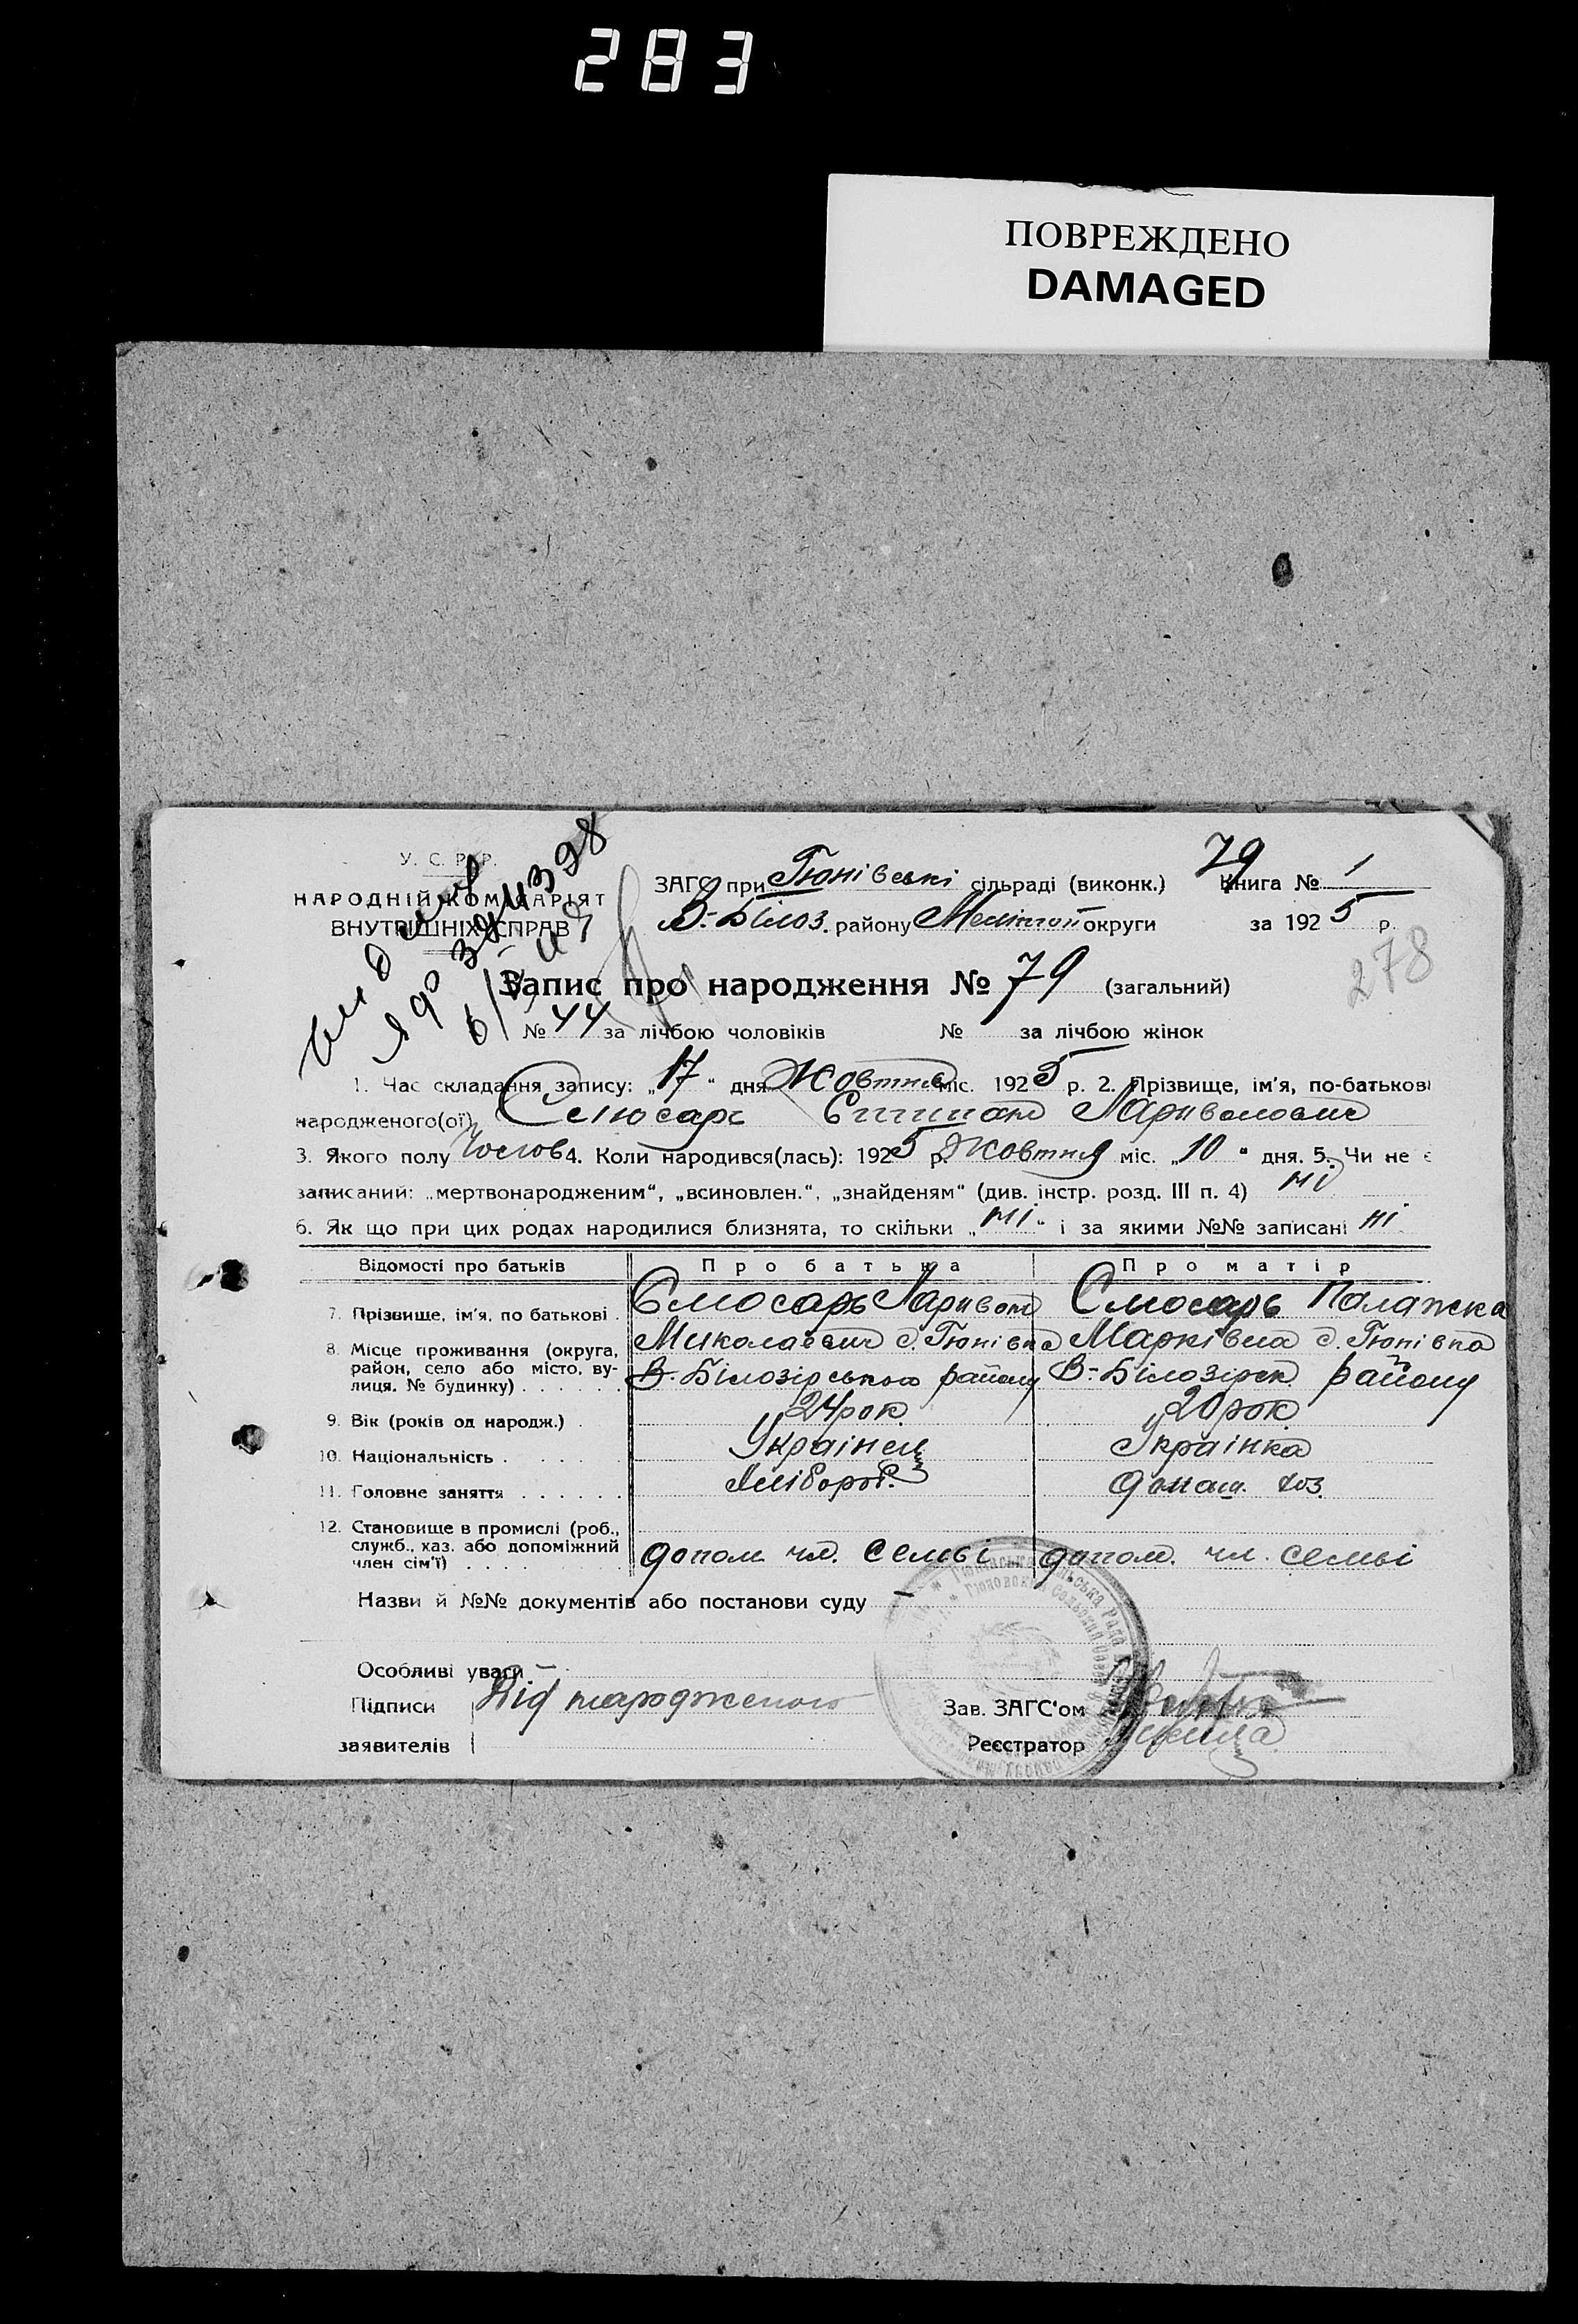 283
ПОВРЕЖДЕНО
DAMAGED
У. С. Р. Р.
НАРОДНІЙ КОМІСАРІЯТ
ВНУТРІШНІХ СПРАВ
79
ЗАГС при Гюнівські сільраді (виконк.) Книга № 1
В-Білоз. району Мелітоп округи за 1925 р.
278
Запис про народження № 79 (загальний)
№ 44 за лічбою чоловіків № за лічбою жінок
1. Час складання запису: „17" дня Жовтня міс. 1925 р. 2. Прізвище, ім'я, по-батькові
народженого(ої) Слюсарь Ларивонович
3. Якого полу Чолов 4. Коли народився(лась): 1925 р. Жовтня міс. „10" дня. 5. Чи не є
записаний: „мертвонародженим", „всиновлен.", „знайденям" (див. інстр. розд. III п. 4) ні
6. Як що при цих родах народилися близнята, то скільки „ні" і за якими №№ записані ні
Відомості про батьків Про батька Про матір
7. Прізвище, ім'я, по батькові . Слюсарь Ларивон Слюсарь Палажка
8. Місце проживання (округа, район, село або місто, вулиця, № будинку) . . . . . . Миколаевич с. Гюнівка Марківна с. Гюнівка
В-Білозірського району В-Білозірск району
9. Вік (років од народж.) . 24 рок 20 рок
10. Національність . . . . Українец Українка
11. Головне заняття . . . . . . Хлібороб. домаш. хоз.
12. Становище в промислі (роб., служб., хаз. або допоміжний член сім'ї) . . . . допом чл. семьі допом. чл. семьі
Назви й №№ документів або постанови суду —
Особливі уваги —
Підписи Дід народженого Зав. ЗАГС'ом
заявителів Реєстратор